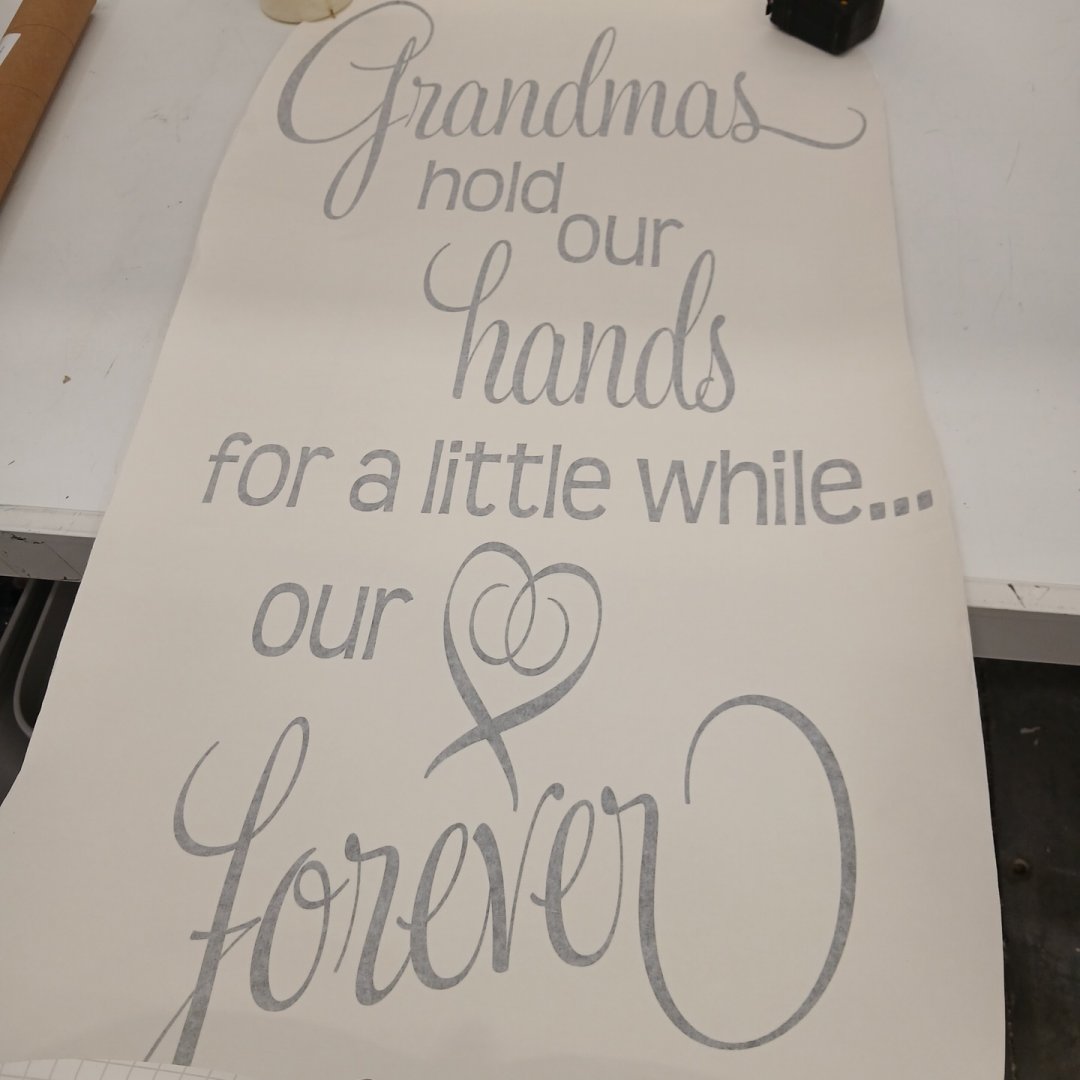 Grandmas
hold
our
hands
for a little while...
our
forever